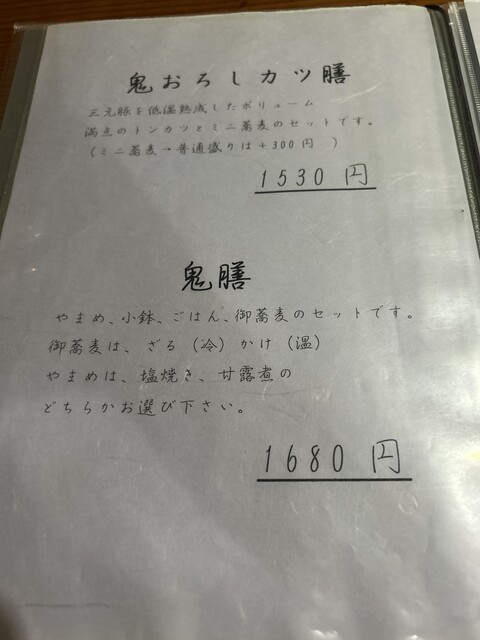 鬼おろしカツ膳
三元豚を低温熟成したボリューム
満点のトンカツとミニ蕎麦のセットです。
(ミニ蕎麦→普通盛りは+300円 )
1530円
鬼膳
やまめ、小鉢、ごはん、御蕎麦のセットです。
御蕎麦は、ざる(冷)かけ(温)
やまめは、塩焼き、甘露煮の
どちらかお選び下さい。
1680円